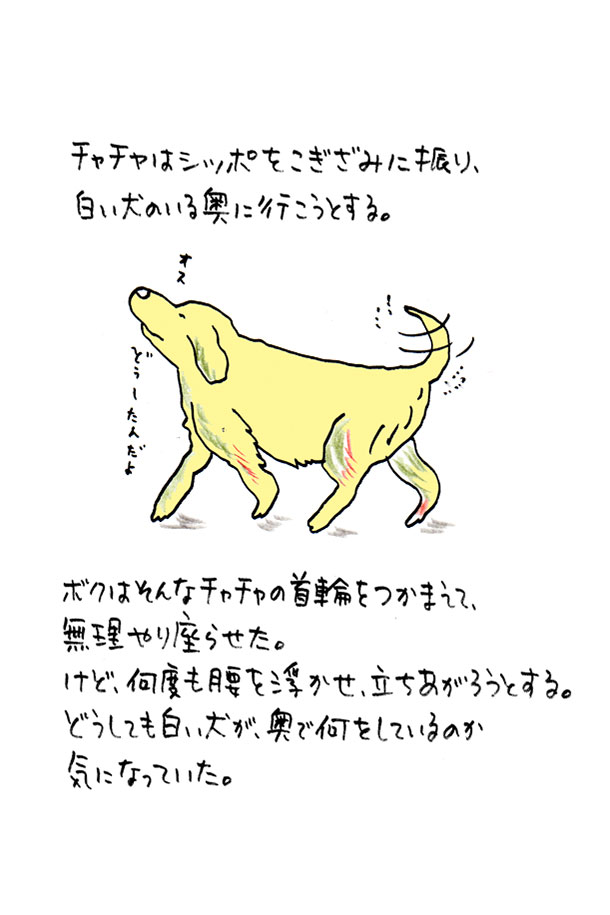 チャチャはシッポをこぎざみに振り、
白い犬のいる奥に行こうとする。
オス
どうしたんだよ
ボクはそんなチャチャの首輪をつかまえて、
無理やり座らせた。
けど、何度も腰を浮かせ、立ちあがろうとする。
どうしても白い犬が、奥で何をしているのか
気になっていた。